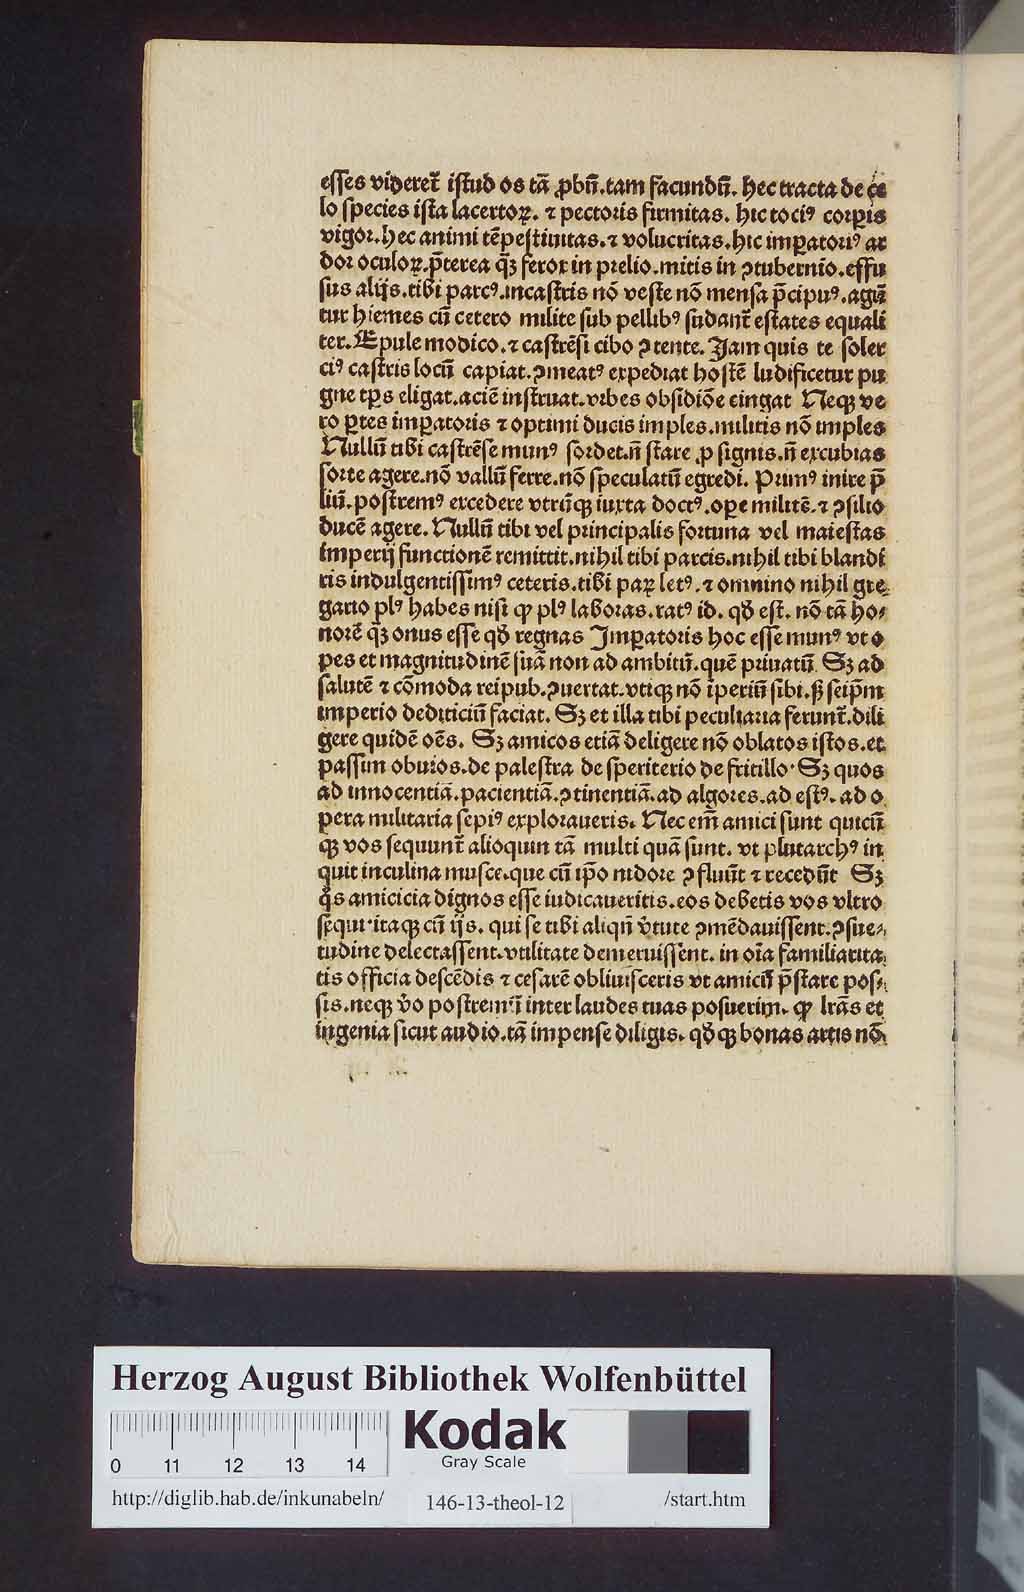 esses videret᷑ istud os tā ꝓbū.tam facundū. hec tracta de ce
lo species ista lacertoꝝ. ⁊ pectoris firmitas. hic tociꝰ corꝑis
vigor.hec animi tēpestiuitas.⁊ volucritas.hic imꝑatoriꝰ ar
dor oculoꝝ.p̄terea qͣꝫ ferox in prelio.mitis in ꝯtubernio.effu
sus alijs.tibi parcꝰ.incastris nō veste nō mensa p̄cipuꝰ.agū
tur hiemes cū cetero milite sub pellibꝰ sudant᷑ estates equali
ter.Epule modico.⁊ castrēsi cibo ꝯtente. Jam quis te soler
ciꝰ castris locū capiat.ꝯmeatꝰ expediat hostē ludificetur pu
gne tꝑs eligat.aciē instruat.vrbes obsidiōe cingat Neqꝫ ve
ro ꝑtes imꝑatoris ⁊ optimi ducis imples.militis nō imples
Nullū tibi castrēse munꝰ sordet.n̄ stare ꝓ signis.n̄ excubias
sorte agere.nō vallū ferre.nō speculatū egredi. Primꝰ inire p̄
liū.postremꝰ excedere vtrūqꝫ iuxta doctꝰ.oꝑe militē.⁊ ꝯsilio
ducē agere. Nullū tibi vel principalis fortuna vel maiestas
imperij functionē remittit.nihil tibi parcis.nihil tibi blandi
ris indulgentissimꝰ ceteris.tibi paꝝ letꝰ.⁊ omnino nihil gre⸗
gario plꝰ habes nisi ꝙ plꝰ laboras.ratꝰ id. qð est. nō tā ho⸗
norē qͣꝫ onus esse qð regnas Imꝑatoris hoc esse munꝰ vt o
pes et magnitudinē suā non ad ambitū.quē priuatū Sꝫ ad
salutē ⁊ cōmoda reipub.ꝯuertat.vtiqꝫ nō iperiū sibi.ꝭ seip̄m
imperio dediticiū faciat. Sꝫ et illa tibi peculiaria ferunt᷑.dili
gere quidē oēs. Sꝫ amicos etiā deligere nō oblatos istos.et
passim obuios.de palestra de speriterio de fritillo· Sꝫ quos
ad innocentiā.pacientiā.ꝯtinentiā.ad algores.ad estꝰ.ad o
pera militaria sepiꝰ exploraueris. Nec em̄ amici sunt quicū
qꝫ vos sequunt᷑ alioquin tā multi quā sunt. vt plutarchꝰ in
quit inculina musce.que cū ip̄o nidore ꝯfluūt ⁊ recedūt Sꝫ
q̄s amicicia dignos esse iudicaueritis.eos debetis vos vltro
sequi·itaqꝫ cū ijs. qui se tibi aliqn̄ v̄tute ꝯmēdauissent.ꝯsue⸗
tudine delectassent.vtilitate demeruissent. in oīa familiarita⸗
tis officia descēdis ⁊ cesarē obliuisceris vt amicū p̄stare pos⸗
sis.neqꝫ v̄o postremū inter laudes tuas posuerim. ꝙ lr̄as et
ingenia sicut audio.tā impense diligis. qð qꝫ bonas artis nō
Herzog August Bibliothek Wolfenbüttel
0 11 12 13 14
Kodak
Gray Scale
http://diglib.hab.de/inkunabeln/ 146-13-theol-12 /start.htm